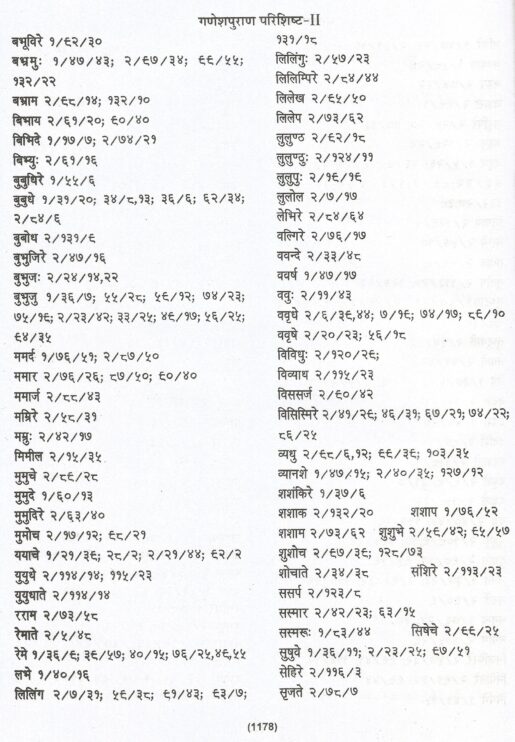 गणेशपुराण परिशिष्ट-II
बभूविरे १/९२/३०
बभ्रमुः १/४७/४३; २/९७/३४; ९९/५५;
१३२/२२
बभ्राम २/९८/१४; १३२/१०
बिभाय २/६१/२०; ९०/४०
बिभिदे १/१७/७; २/७४/२१
बिभ्युः २/६१/१६
बुबुधिरे १/५५/६
बुबुधे १/३१/२०; ३४/८,१३; ३६/६; ६२/३४;
२/८४/६
बुबोध २/१३१/९
बुभुजिरे २/४७/१६
बुभुजः २/२४/१४,२२
बुभुजु १/३६/७; ५५/२८; ५९/१२; ७४/२३;
७५/१९; २/२३/४२; ३३/२५; ४९/१७; ५६/२५;
९४/३५
ममर्द १/७६/५१; २/८७/५०
ममार २/७६/२६; ८७/५०; ९०/४०
ममार्ज २/८८/४३
मम्रिरे २/५८/३१
मम्रुः २/४२/१७
मिमील २/१५/३५
मुमुचे २/८९/२८
मुमुदे १/६०/१३
मुमुदिरे २/६३/४०
मुमोच २/१७/१२; ९८/२१
ययाचे १/२१/३९; २८/२; २/२१/४४; ९२/२
युयुधे २/११४/१४; ११५/२३
युयुधाते २/११४/१४
रराम २/७३/५८
रेमाते २/५/४८
रेमे १/३६/९; ३९/५७; ४०/१५; ७६/२५,४९,५५
लभे १/४०/१६
लिलिंग २/७/३१; ५९/३८; ९१/४३; ९३/७;
१३१/१८
लिलिंगुः २/५७/२३
लिलिम्पिरे २/८४/४४
लिलेख २/९५/५०
लिलेप २/७३/६२
लुलुण्ठ २/९२/१८
लुलुण्ठुः २/१२४/११
लुलुपुः २/१९/१९
लुलोल २/७/१७
लेभिरे २/८४/६४
वल्गिरे २/७६/१७
ववन्दे २/३३/४८
ववर्ष १/४७/१७
ववुः २/११/४३
ववृधे २/६/३९,४४; ७/१९; ७४/१७; ८९/१०
ववृषे २/२०/२३; ५६/१८
विविधुः २/१२०/२९;
विव्याध २/११५/२३
विससर्ज २/९०/४२
विसिस्मिरे २/४१/२९; ४६/३१; ६७/२१; ७४/२२;
८६/२५
व्यधु २/९८/६,१२; ९९/३९; १०३/३५
व्यानशे १/४७/१५; २/४०/३५; १२७/१२
शशंकिरे १/३७/६
शशाक २/१३२/२० शशाप १/७६/५२
शशाम २/७३/६२ शुशुभे २/५९/४२; ९५/५७
शुशोच २/९७/३९; १२८/७३
शोचाते २/३४/३८ संशिरे २/११३/२३
ससर्प २/१२३/८
सस्मार २/४२/२३; ६३/१५
सस्मरूः १/८३/४४ सिषेचे २/९९/२५
सुषुवे १/३६/११; २/२३/२५; ९७/५१
सेहिरे २/११६/३
सृजते २/७८/७
(1178)